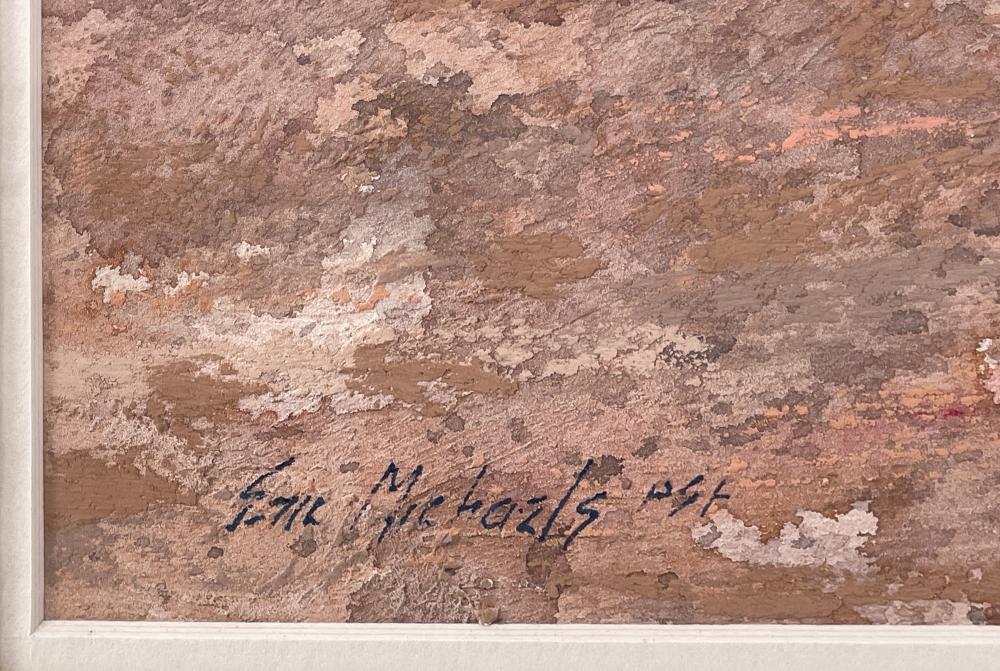 Eric Michaels PSA